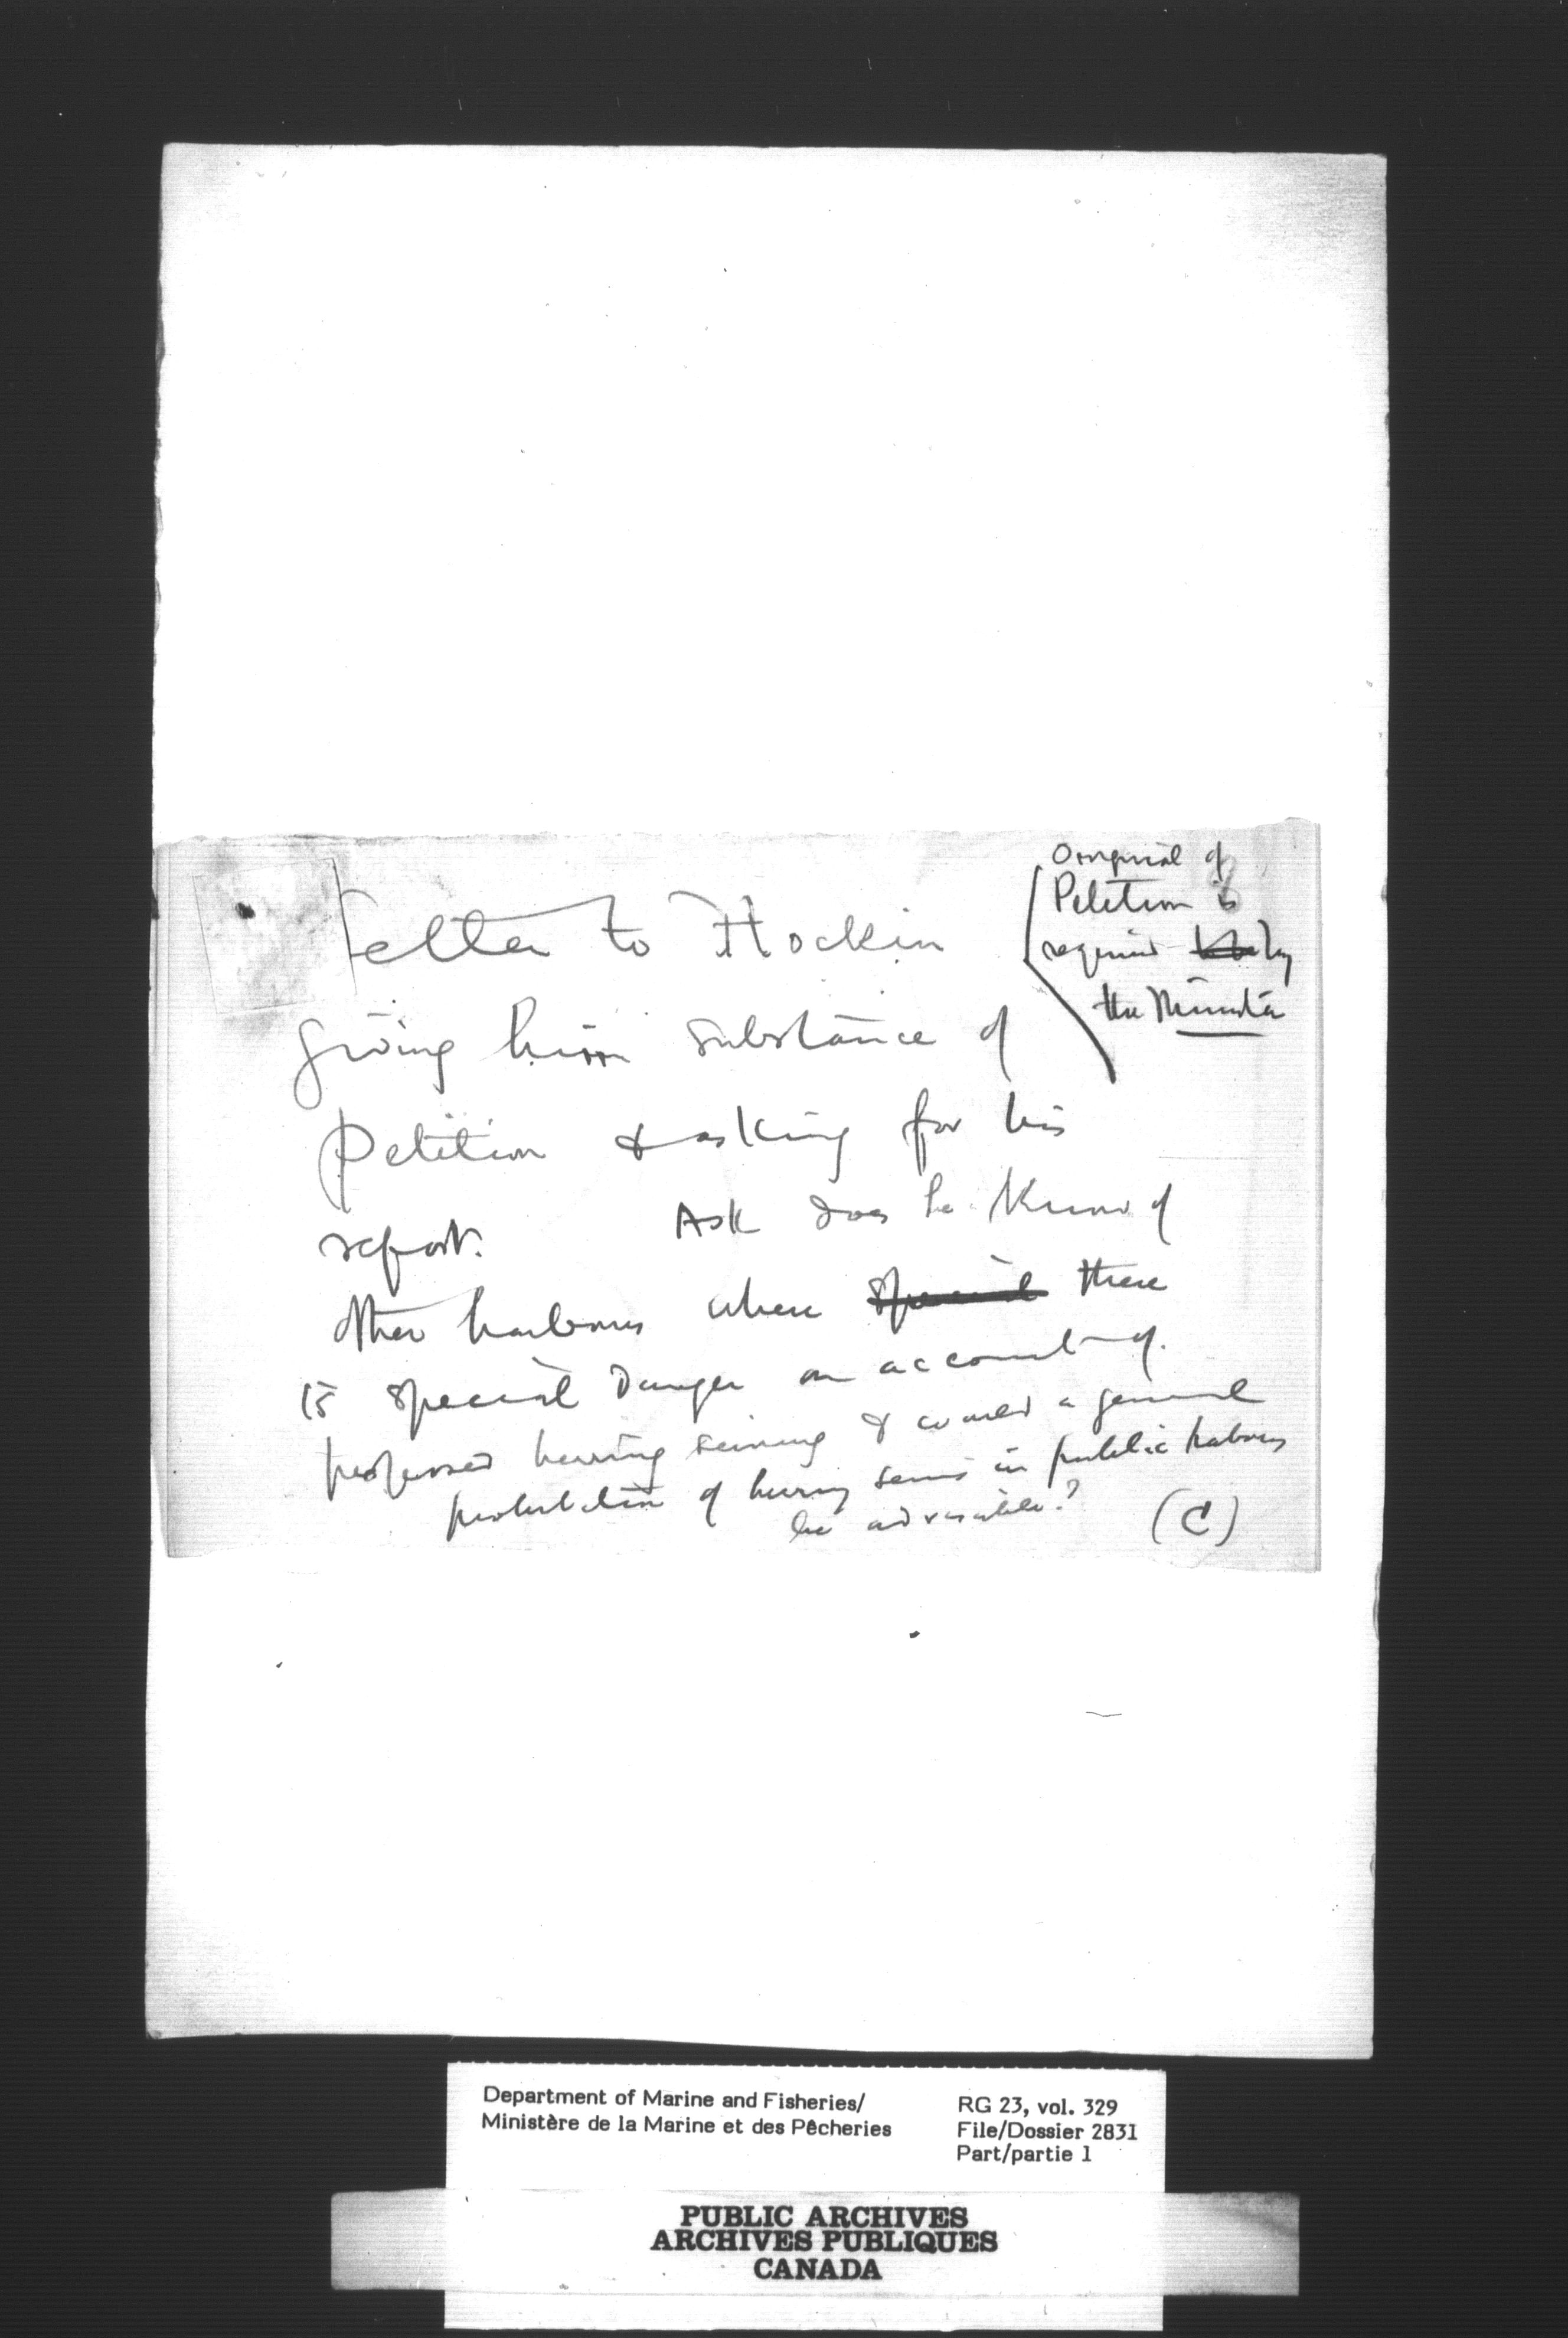 Letter to Hockin
giving him substance of
Petition & asking for his
report. Ask does he know of
other harbours where special there
is special danger on account of
proposed herring seining & would a general
prohibition of herring seines in public harbours
be advisable?
(C)
Original of
Petition is
required by
the Minister
Department of Marine and Fisheries/
Ministère de la Marine et des Pêcheries
RG 23, vol. 329
File/Dossier 2831
Part/partie 1
PUBLIC ARCHIVES
ARCHIVES PUBLIQUES
CANADA